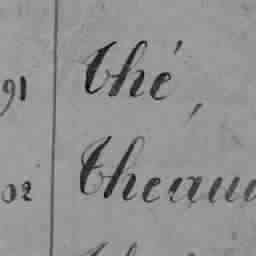 91 Thé,
02 Theau